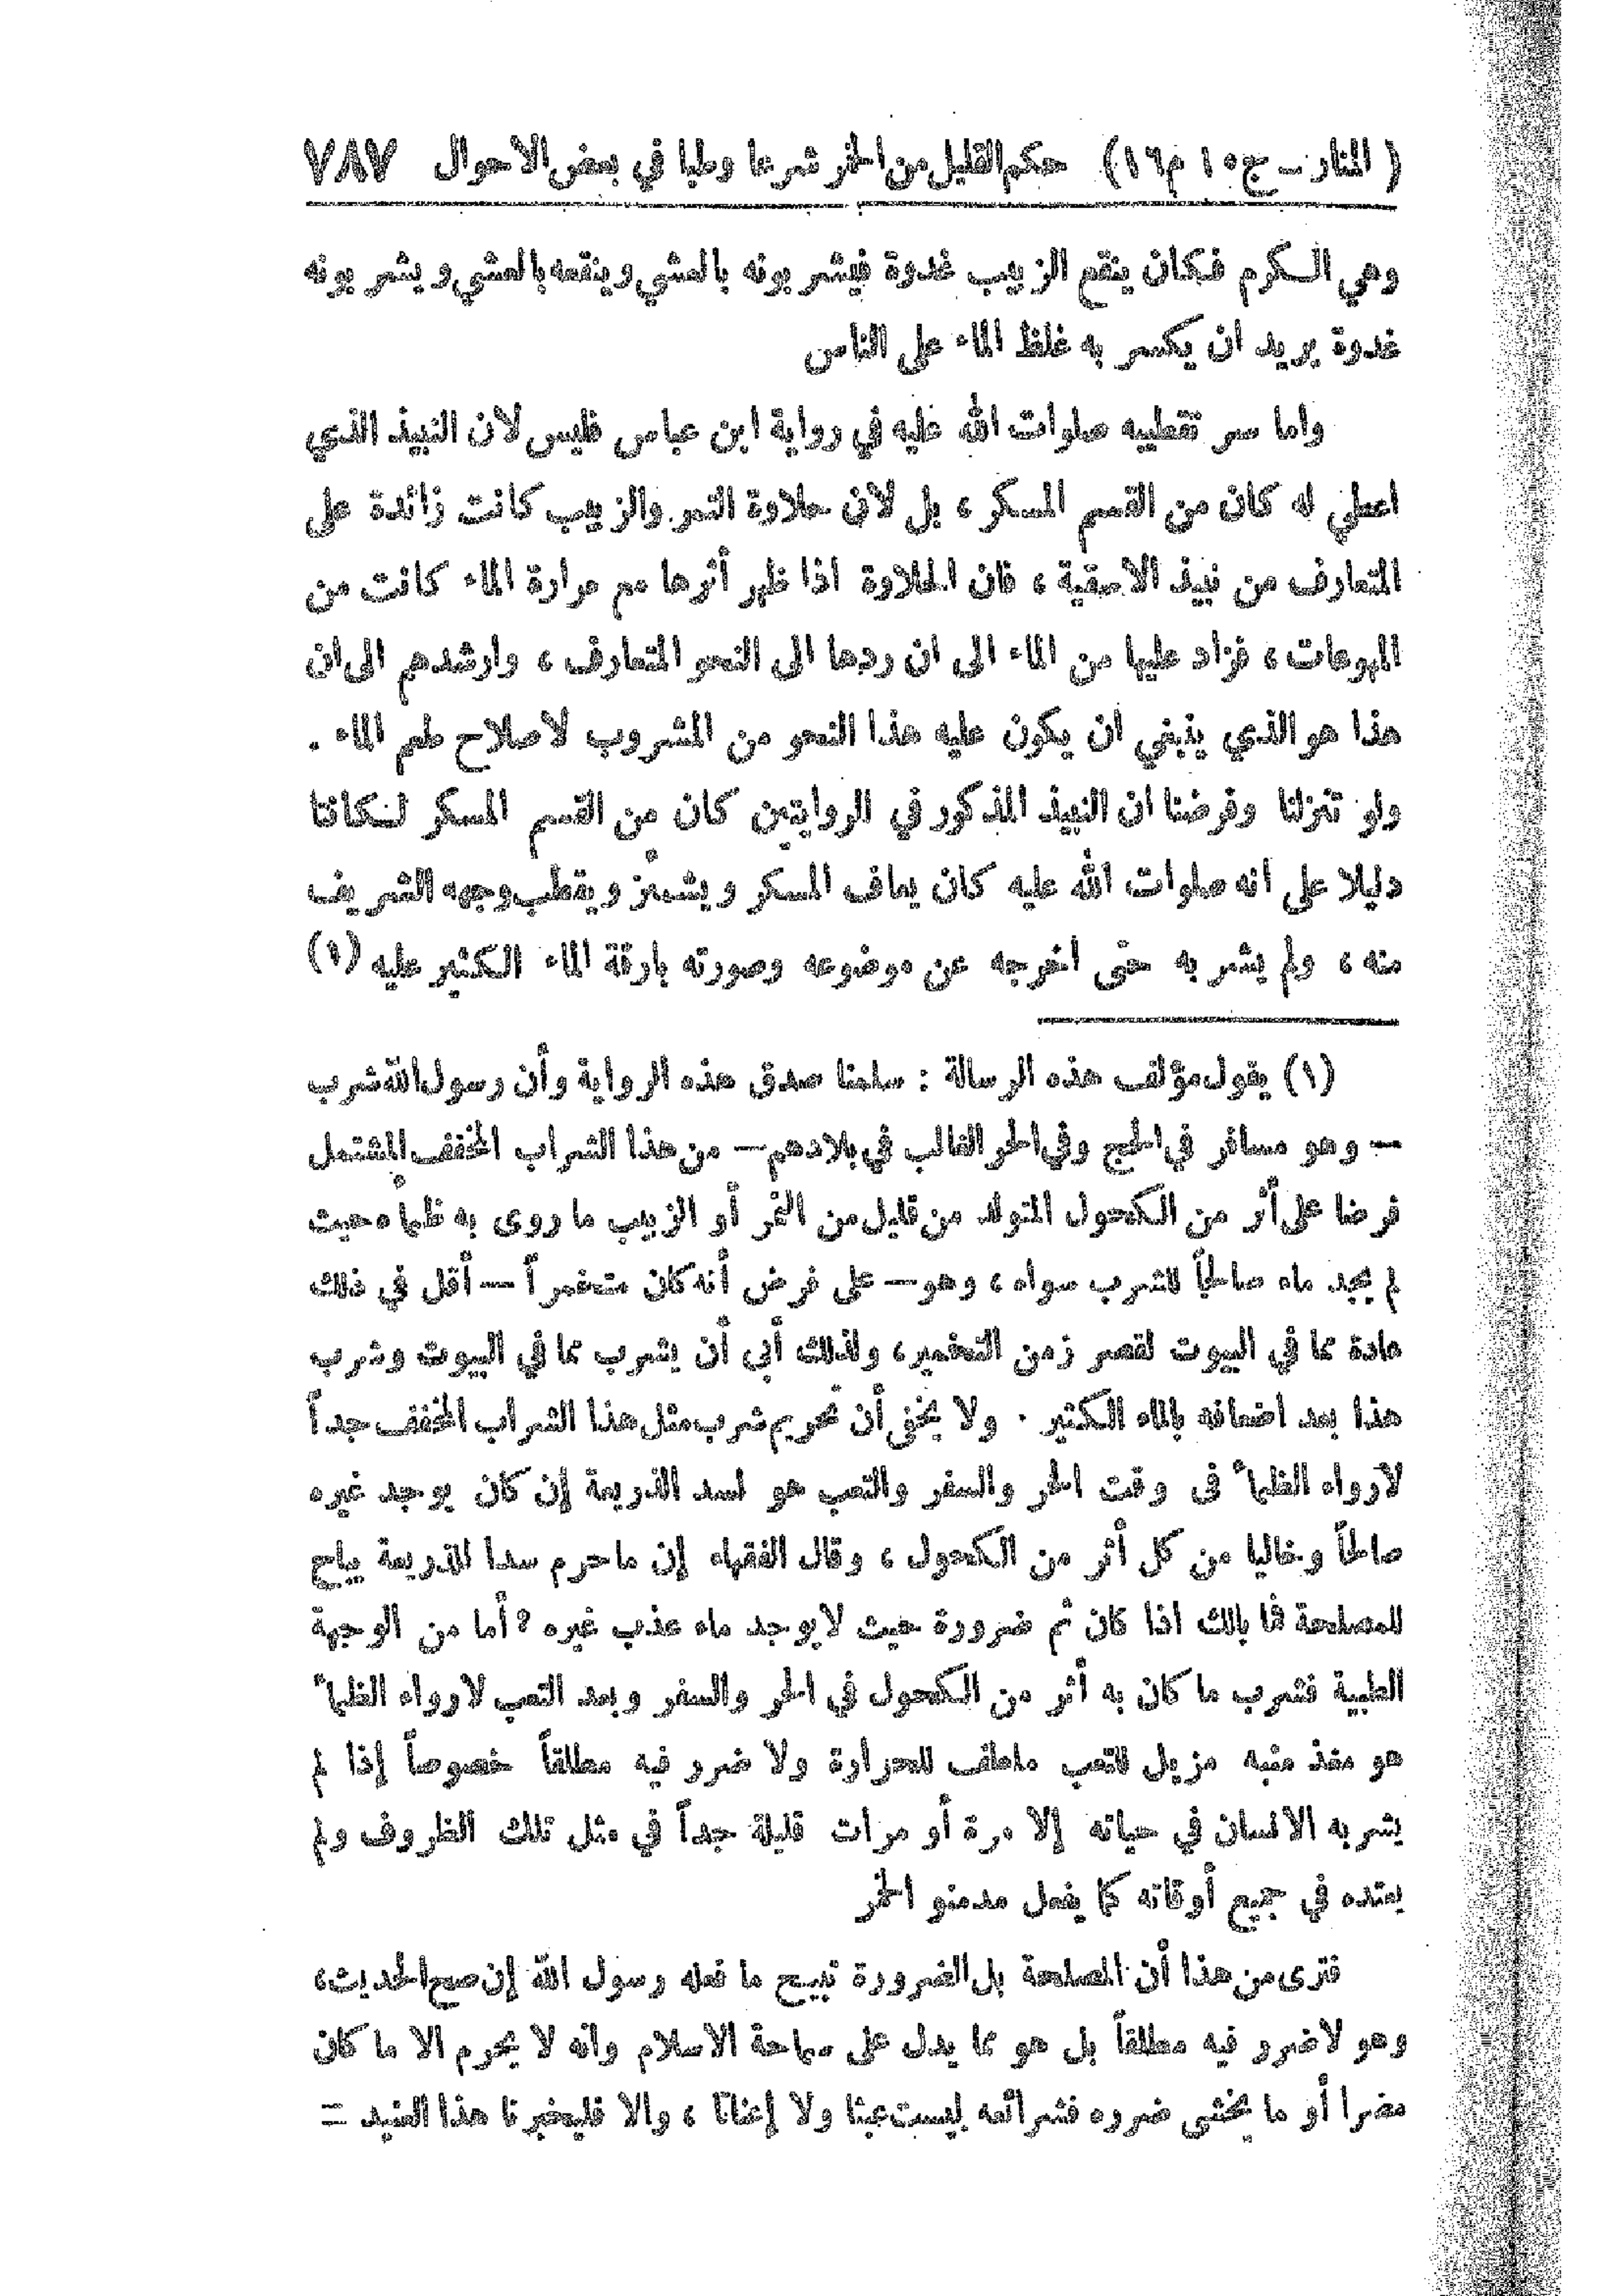 ( المنار ــ ج ١٠ م ١٦ ) حكم القليل من الخمر شرعا وطبا في بعض الاحوال ٧٨٧
وهي الكرم فكان ينقع الزبيب غدوة فيشربونه بالعشي وينقعه بالعشي ويشربونه
غدوة يريد ان يكسر به غلظ الماء على الناس
واما سر تقطيبه صلوات الله عليه في رواية ابن عباس فليس لان النبيذ الذي
اعطي له كان من القسم المسكر ، بل لان حلاوة التمر والزبيب كانت زائدة على
المتعارف من نبيذ الاسقية ، فان الحلاوة اذا ظهر أثرها مع مرارة الماء كانت من
المهوعات ، فزاد عليها من الماء الى ان ردها الى النحو المتعارف ، وارشدهم الى ان
هذا هو الذي ينبغي ان يكون عليه هذا النحو من المشروب لاصلاح طعم الماء .
ولو تنزلنا وفرضنا ان النبيذ المذكور في الروايتين كان من القسم المسكر لكانتا
دليلا على انه صلوات الله عليه كان يعاف المسكر ويشمئز ويقطب وجهه الشريف
منه ، ولم يشربه حتى اخرجه عن موضوعه وصورته بارقة الماء الكثير عليه (١)
(١) يقول مؤلف هذه الرسالة : سلمنا صدق هذه الرواية وأن رسول الله شرب
— وهو مسافر في الحج وفي الحر الغالب في بلادهم — من هذا الشراب المخفف المشتمل
فرضا على أثر من الكحول المتولد من قليل من التمر أو الزبيب ما روى به ظمأه حيث
لم يجد ماء صالحاً للشرب سواه ، وهو — على فرض أنه كان متخمراً — أقل في ذلك
عادة مما في البيوت لقصر زمن التخمير ، ولذلك أبى أن يشرب مما في البيوت وشرب
هذا بعد اضعافه بالماء الكثير . ولا يخفى أن تحريم شرب مثل هذا الشراب المخفف جداً
لارواء الظمأ فى وقت الحر والسفر والتعب هو لسد الذريعة إن كان يوجد غيره
صالحاً وخاليا من كل أثر من الكحول ، وقال الفقهاء إن ما حرم سدا للذريعة يباح
للمصلحة فما بالك اذا كان ثم ضرورة حيث لا يوجد ماء عذب غيره ؟ أما من الوجهة
الطبية فشرب ما كان به أثر من الكحول في الحر والسفر وبعد التعب لارواء الظمأ
هو مغذ منبه مزيل للتعب ملطف للحرارة ولا ضرر فيه مطلقاً خصوصاً إذا لم
يشربه الانسان في حياته إلا مرة أو مرات قليلة جداً في مثل تلك الظروف ولم
يعتده في جميع أوقاته كما يفعل مدمنو الخمر
فترى من هذا أن المصلحة بل الضرورة تبيح ما فعله رسول الله إن صح الحديث ،
وهو لا ضرر فيه مطلقاً بل هو مما يدل على سماحة الاسلام وانه لا يحرم الا ما كان
مضرا أو ما يخشى ضرره فشرائعه ليست عبثا ولا إعناتا ، والا فليخبرنا هذا العنيد =